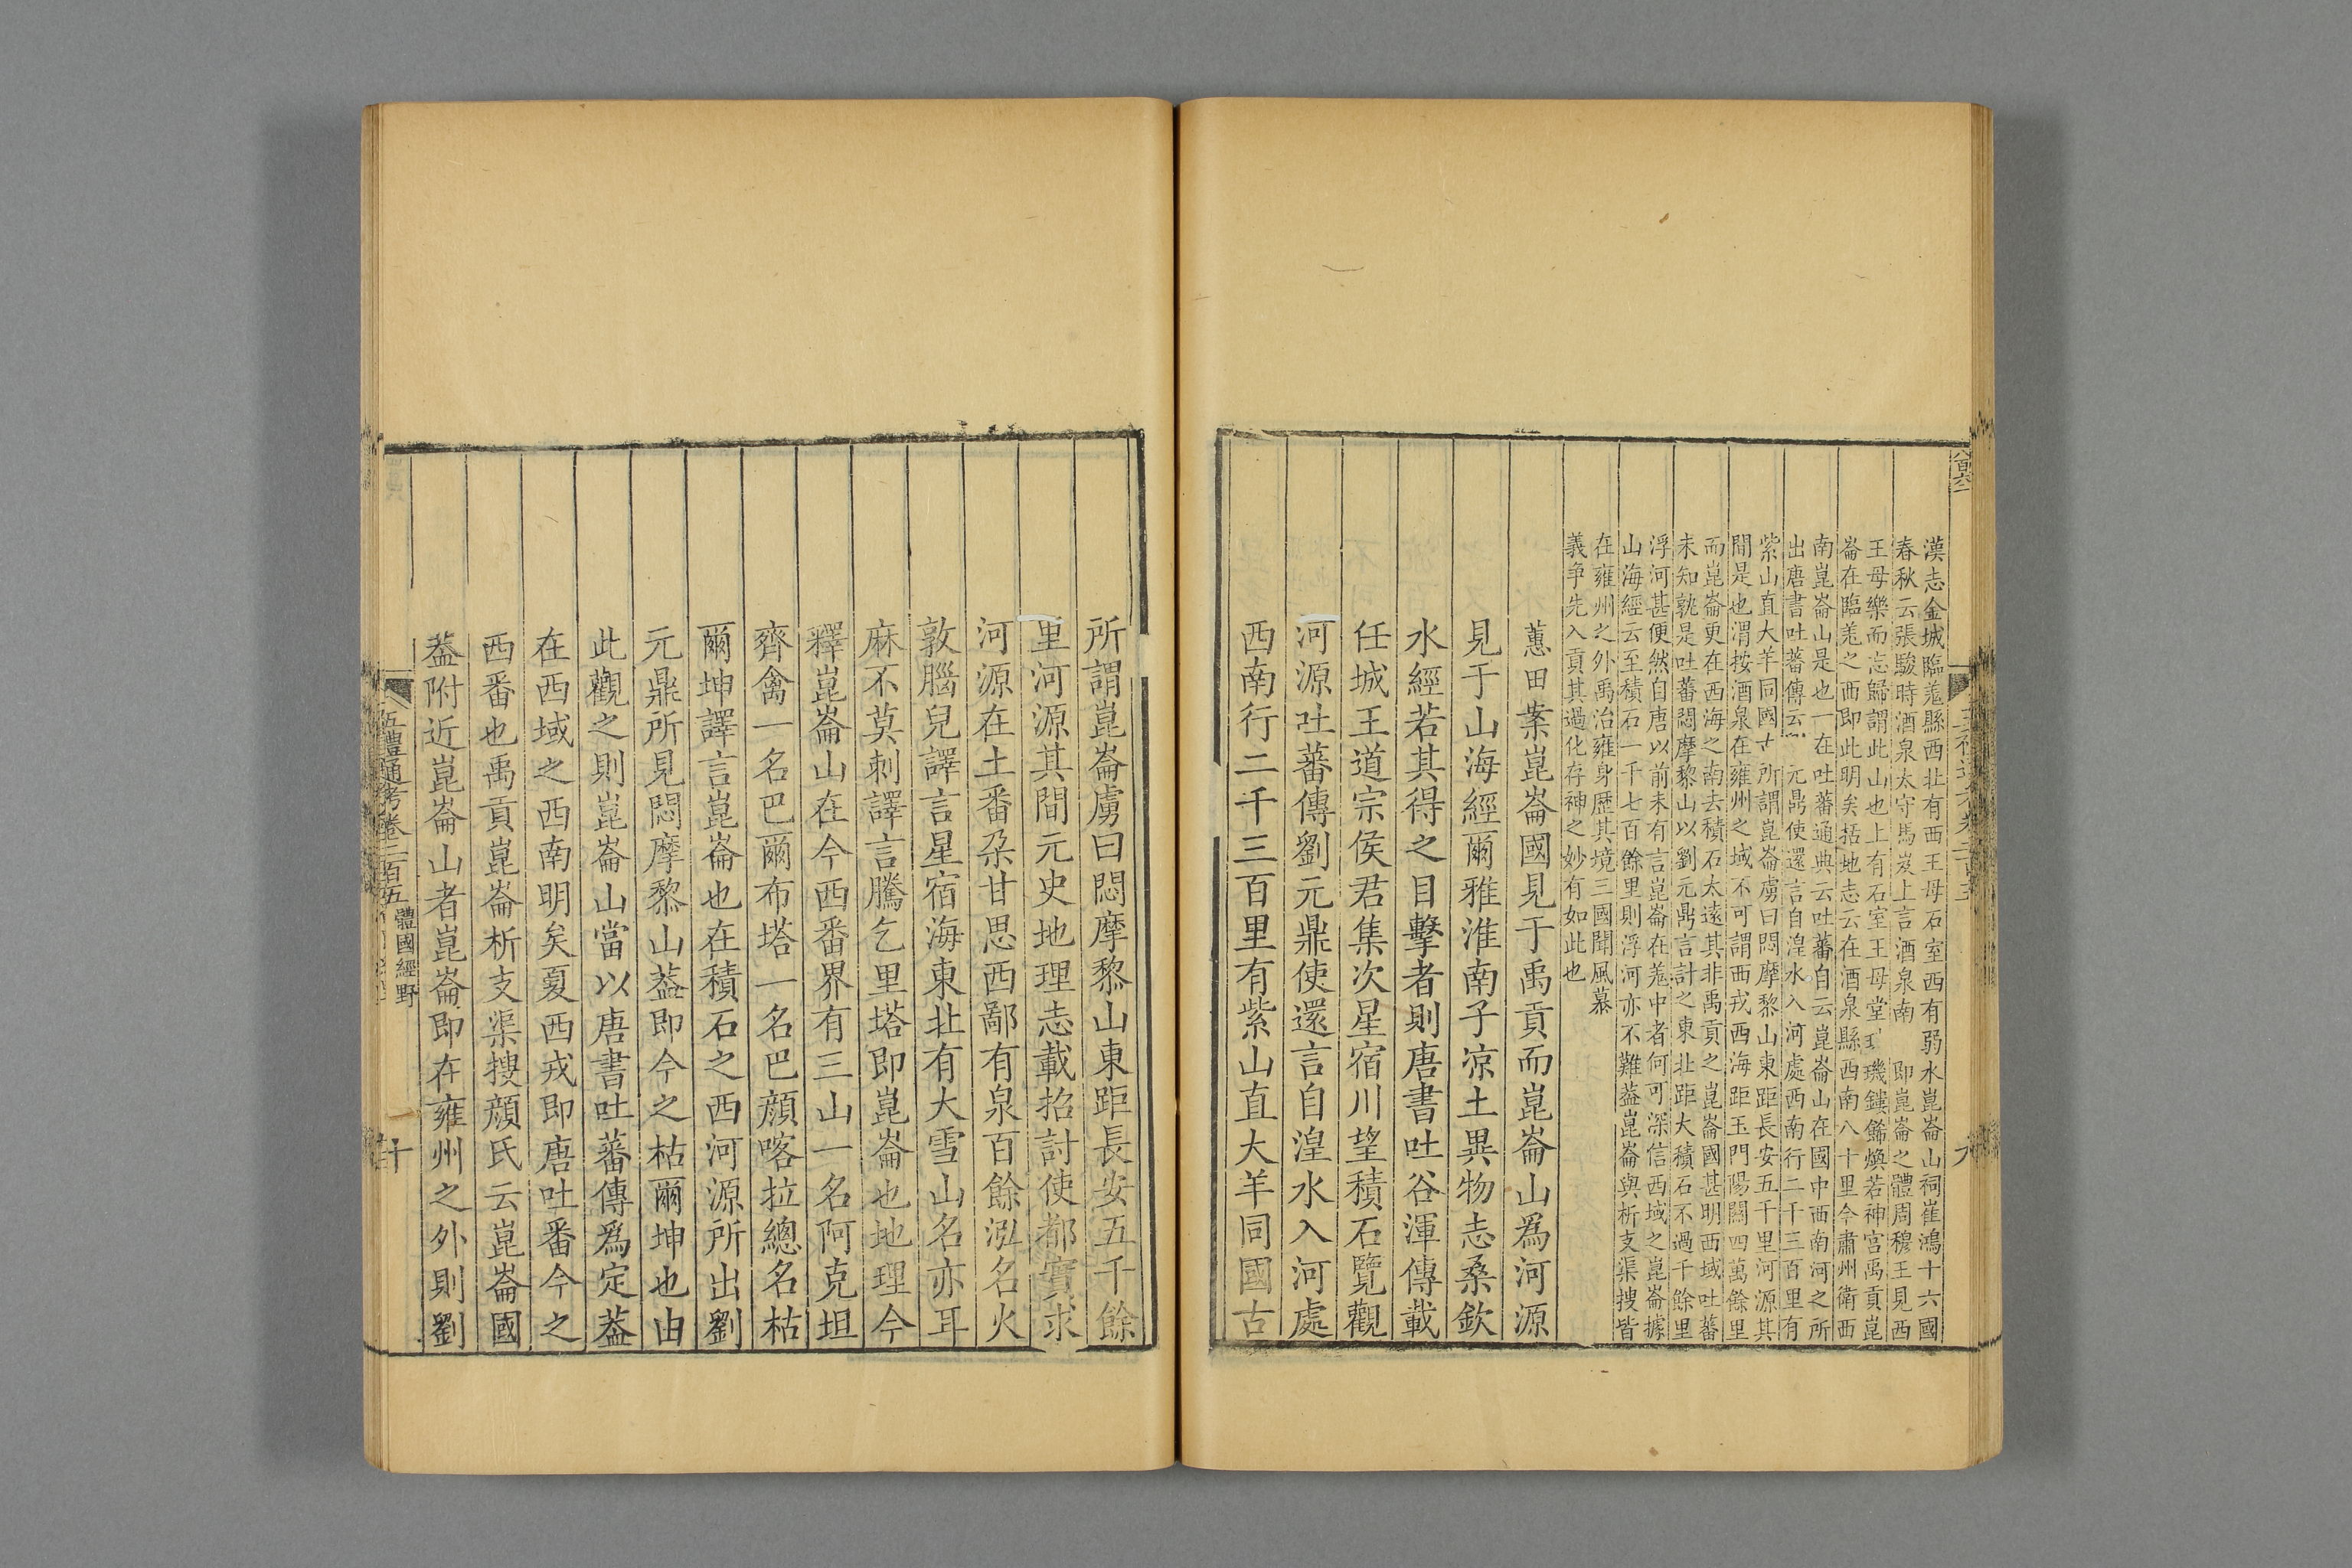 漢志金城臨羌縣西北有西王母石室西有弱水崑崙山祠崔鴻十六國
春秋云張駿時酒泉太守馬岌上言酒泉南　即崑崙之體周穆王見西
王母樂而忘歸謂此山也上有石室王母堂　璣鏤飾煥若神宮禹貢崑
崙在臨羌之西即此明矣括地志云在酒泉縣西南八十里今肅州衛西
南崑崙山是也一在吐蕃通典云吐蕃自云崑崙山在國中西南河之所
出唐書吐蕃傳云　元鼎使還言自湟水入河處西南行二千三百里有
紫山直大羊同國古所謂崑崙虜曰悶摩黎山東距長安五千里河源其
間是也渭按酒泉在雍州之域不可謂西戎西海距玉門陽關四萬餘里
而崑崙更在西海之南去積石太遠其非禹貢之崑崙國甚明西域吐蕃
未知孰是吐蕃悶摩黎山以劉元鼎言計之東北距大積石不過千餘里
浮河甚便然自唐以前未有言崑崙在羌中者何可深信西域之崑崙據
山海經云至積石一千七百餘里則浮河亦不難葢崑崙與析支渠搜皆
在雍州之外禹治雍身歷其境三國聞風慕
義爭先入貢其過化存神之妙有如此也
蕙田案崑崙國見于禹貢而崑崙山爲河源
見于山海經爾雅淮南子凉土異物志桑欽
水經若其得之目擊者則唐書吐谷渾傳載
任城王道宗侯君集次星宿川望積石覽觀
河源吐蕃傳劉元鼎使還言自湟水入河處
西南行二千三百里有紫山直大羊同國古
八百六二
九
所謂崑崙虜曰悶摩黎山東距長安五千餘
里河源其間元史地理志載招討使都實求
河源在土番朶甘思西鄙有泉百餘泓名火
敦腦兒譯言星宿海東北有大雪山名亦耳
麻不莫刺譯言騰乞里塔即崑崙也地理今
釋崑崙山在今西番界有三山一名阿克坦
齊禽一名巴爾布塔一名巴顔喀拉總名枯
爾坤譯言崑崙也在積石之西河源所出劉
元鼎所見悶摩黎山葢即今之枯爾坤也由
此觀之則崑崙山當以唐書吐蕃傳爲定葢
在西域之西南明矣夏西戎即唐吐番今之
西番也禹貢崑崙析支渠搜顔氏云崑崙國
葢附近崑崙山者崑崙即在雍州之外則劉
五禮通考卷二百五　體國經野
十